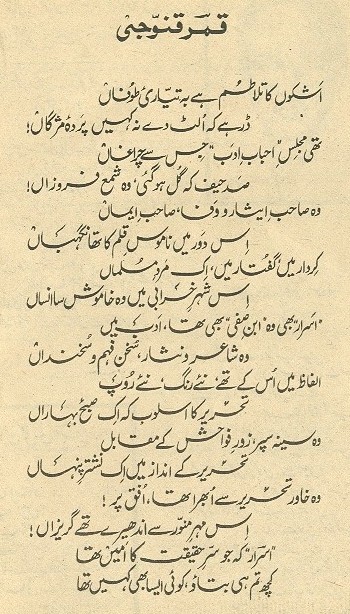 قمر قنوجی
اشکوں کا تلاطم ہے بہ تیاریٔ طوفاں
ڈر ہے کہ اُلٹ دے نہ کہیں پردۂ مژگاں!
تھی مجلسِ "احبابِ ادب" جس سے چراغاں
صد حیف کہ گُل ہو گئی، وہ شمعِ فروزاں!
وہ صاحبِ ایثار و وفا، صاحبِ ایماں
اِس دور میں ناموسِ قلم کا تھا نگہباں
کردار میں، گفتار میں، اِک مردِ مسلماں
اِس شہرِ خرابی میں وہ خاموش سا انساں
"اسرار" بھی وہ "ابنِ صفی" بھی تھا، ادب میں
وہ شاعر و نثار، سُخن فہم و سُخنداں
الفاظ میں اُس کے تھے نئے رنگ، نئے رُوپ
تحریر کا اسلوب کہ اِک صبحِ بہاراں
وہ سینہ سپر، زورِ فواحش کے مقابل
تحریر کے انداز میں اِک نشترِ پنہاں
وہ خاورِ تحریر سے اُبھرا تھا، اُفق پر!
اِس مہرِ منوّر سے اندھیرے تھے گریزاں!
"اسرار" کہ جو سرِّ حقیقت کا امیں تھا
کچھ تم ہی بتاؤ، کوئی ایسا بھی کہیں تھا